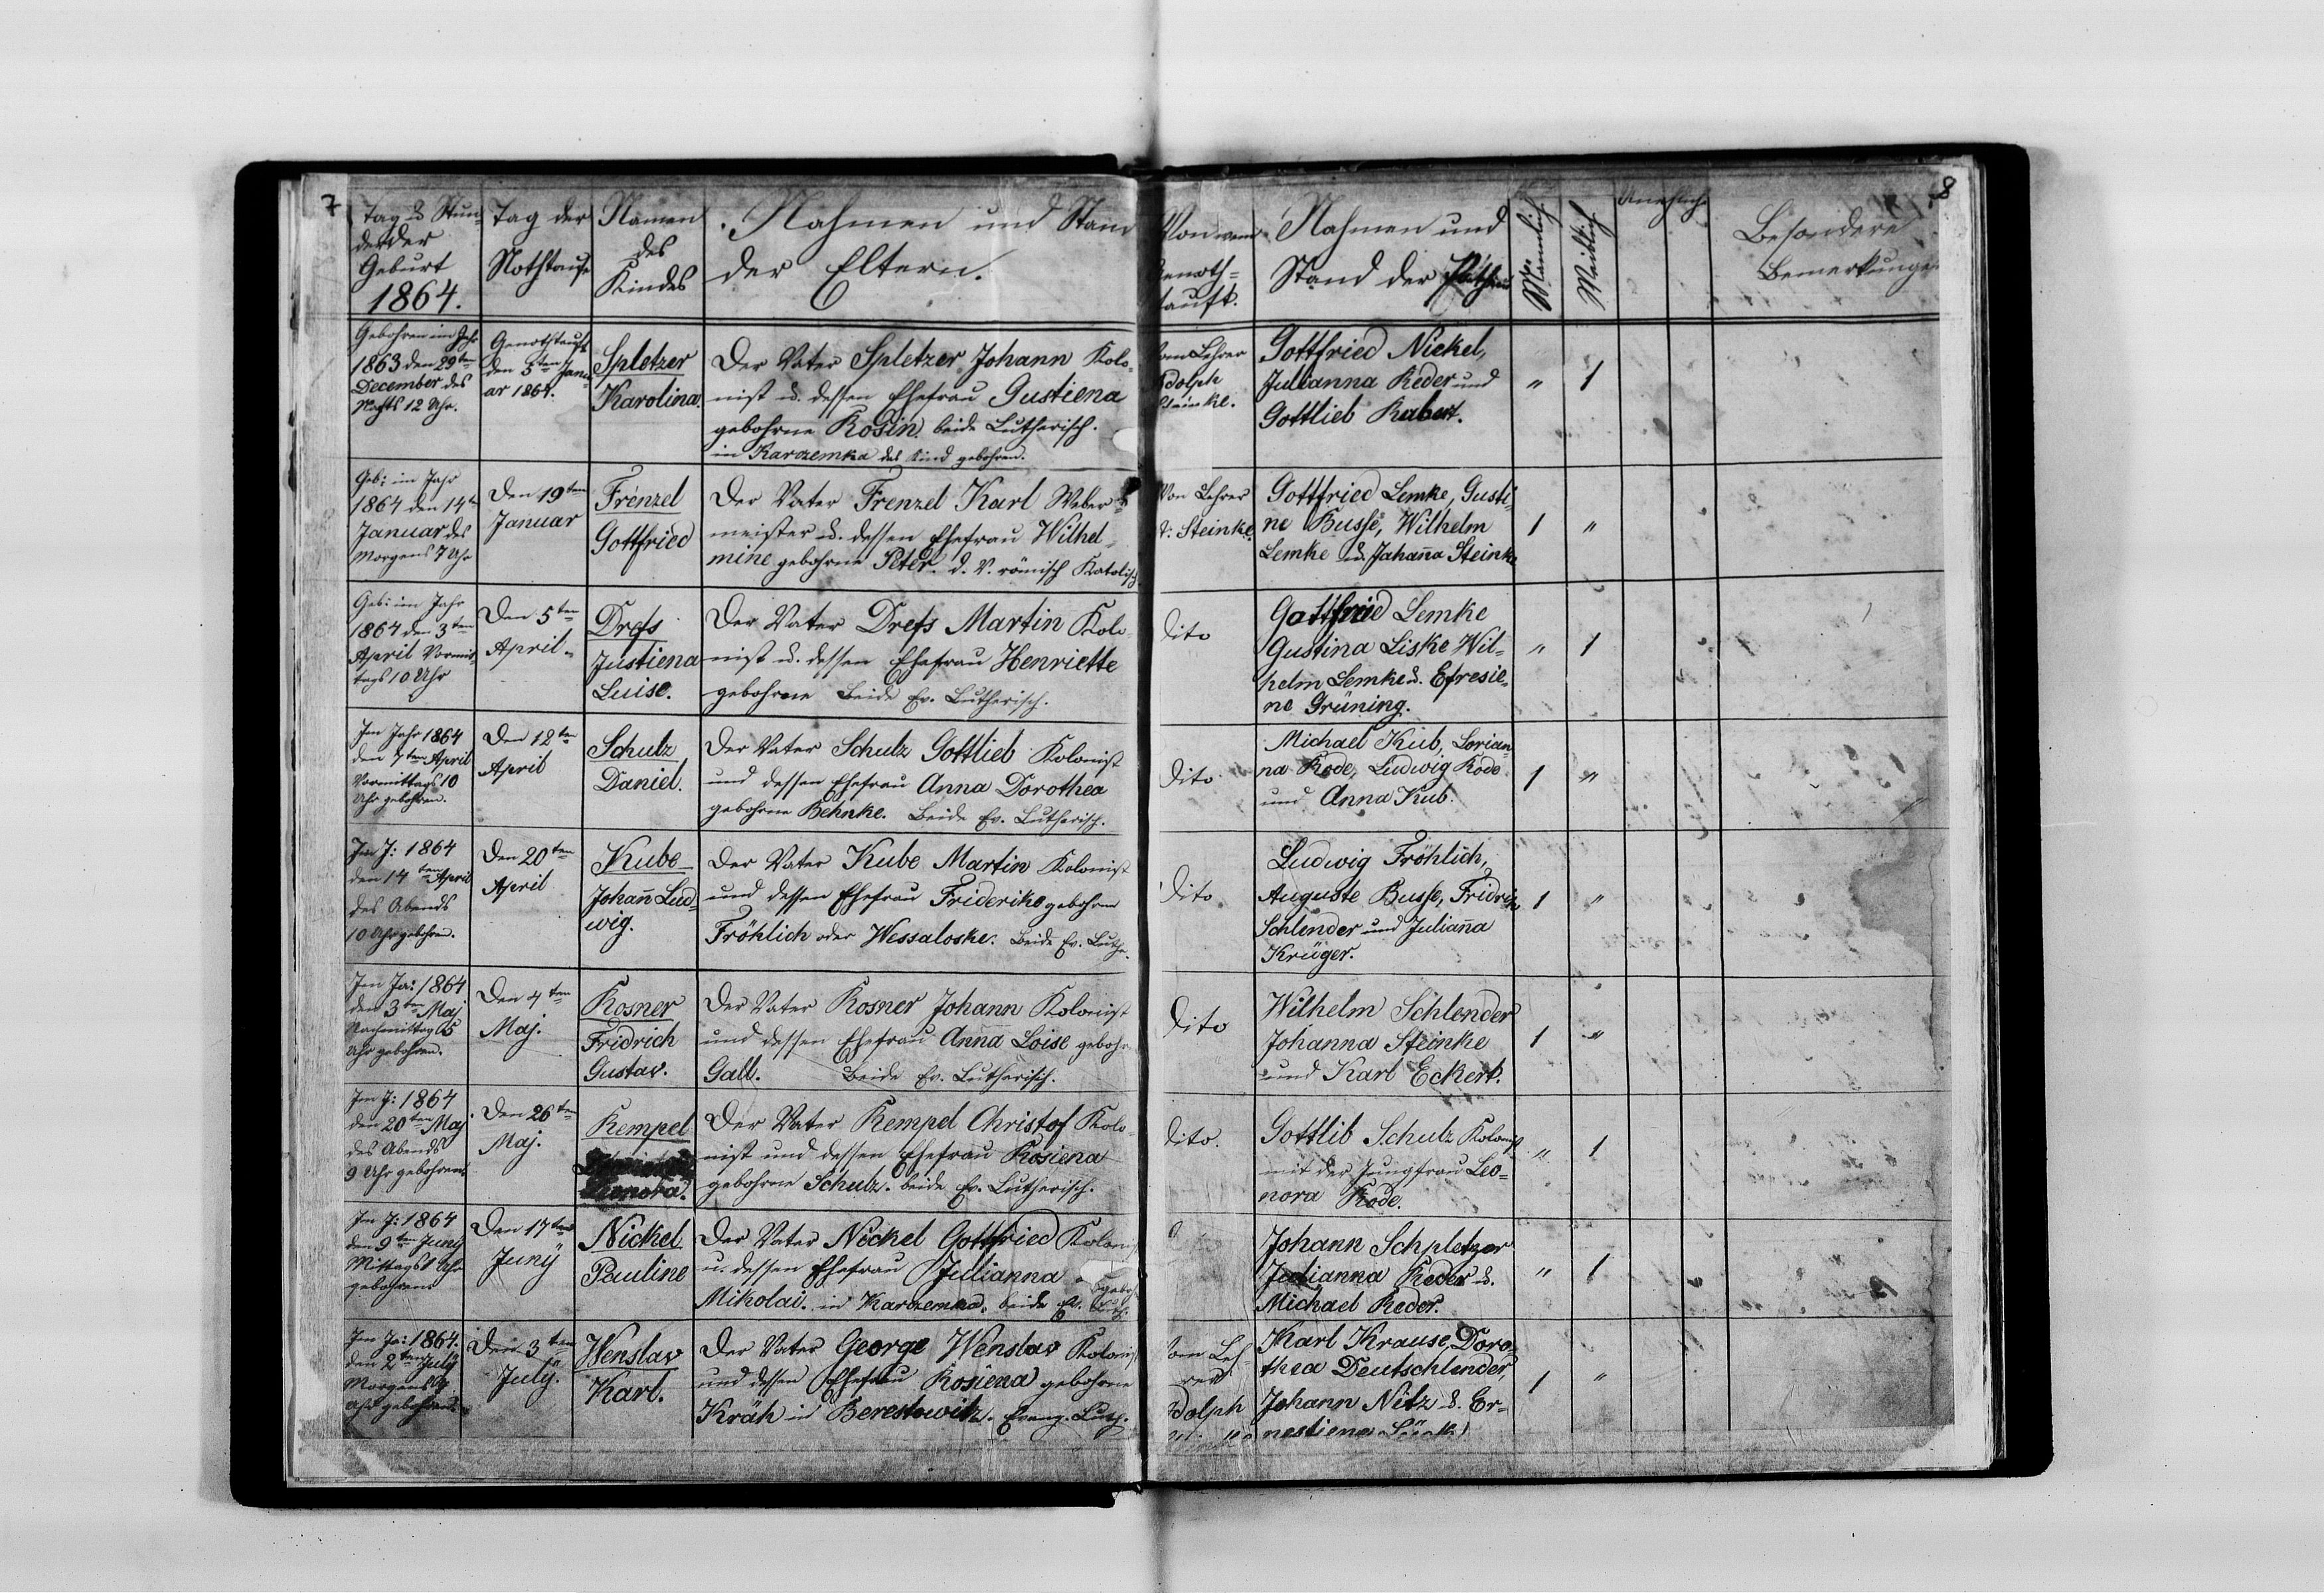 7
Tag u. Stun-
de der
Geburt
1864.
Tag der
Nothtaufe
Namen
des
Kindes
Nahmen und Stand
der Eltern.
Gebohren im Jahr
1863 den 29ten
December des
Nachts 12 Uhr.
Genothtauft
den 5ten Janu-
ar 1864.
Spletzer
Karolina.
Der Vater Spletzer Johann Kolo-
nist u. dessen Ehefrau Gustiena
gebohrne Rosin. beide Lutherisch.
in Karczemka das Kind gebohren.
Geb: im Jahr
1864 den 14ten
Januar des
Morgens 7 Uhr
Den 19ten
Januar
Frenzel
Gottfried
Der Vater Frenzel Karl Weber-
meister u. dessen Ehefrau Wilhel-
mine gebohrne Peter. d. V. römisch Katolisch
Geb: im Jahr
1864 den 3ten
April Vormit-
tags 10 Uhr
Den 5ten
April.
Drefs
Justiena
Luise.
Der Vater Drefs Martin Kolo-
nist u. dessen Ehefrau Henriette
gebohrne Beide Ev. Lutherisch.
Im Jahr 1864
den 7ten April
Vormittags 10
Uhr gebohren.
Den 12ten
April
Schulz
Daniel.
Der Vater Schulz Gottlieb Kolonist
und dessen Ehefrau Anna Dorothea
gebohrne Behnke. Beide Ev. Lutherisch.
Im J: 1864
den 14ten April
des Abends
10 Uhr gebohren.
Den 20ten
April
Kube
Johann Lud-
wig.
Der Vater Kube Martin Kolonist
und dessen Ehefrau Friderike gebohrne
Fröhlich oder Wessaloske. Beide Ev. Luthe.
Im Ja: 1864
den 3ten Maj
Nachmittag 5
Uhr gebohren.
Den 4ten
Maj.
Kosner
Fridrich
Gustav.
Der Vater Kosner Johann Kolonist
und dessen Ehefrau Anna Loise gebohr
Gall. Beide Ev. Lutherisch.
Im J: 1864
den 20ten Maj
des Abends
9 Uhr gebohren
Den 26ten
Maj.
Kempel
Leonora.
Der Vater Kempel Christof Kolo-
nist und dessen Ehefrau Rosiena
gebohrne Schulz. beide Ev. Lutherisch.
Im J: 1864
den 9ten Juny
Mittags 1 Uhr
gebohren
Den 17ten
Juny
Nickel
Pauline
Der Vater Nickel Gottfried Koloni
u. dessen Ehefrau Julianna gebohr
Mikolai. in Karczemka. beide Ev. Luth.
Im Ja: 1864.
den 2ten July
Morgens
Uhr gebohren.
Den 3ten
July.
Wenslav
Karl.
Der Vater George Wenslav Kolonist
und dessen Ehefrau Rosiena gebohrne
Kräh in Berestowitz. Evang. Luth.
8
Von wem
Genoth-
tauft.
Nahmen und
Stand der Pathen
Männlich.
Weiblich.
Unehlich
Besondere
Bemerkungen
Vom Lehrer
Adolph
Steinke.
Gottfried Nickel,
Julianna Reder und
Gottlieb Rabert.
" 1
Von Lehrer
A. Steinke.
Gottfried Lemke, Gusti-
ne Busse, Wilhelm
Lemke u. Johanna Steinke
1 "
Dito
Gottfried Lemke
Gustina Liske Wil-
helm Lemke u. Efresie-
ne Grüning.
" 1
Dito.
Michael Kub, Lorian-
na Rode, Ludwig Rode
und Anna Kub.
1 "
Dito
Ludwig Fröhlich,
Auguste Busse, Fridrich
Schlender und Julianna
Krüger.
1 "
Dito
Wilhelm Schlender
Johanna Steinke
und Karl Eckert.
1 "
Dito.
Gottlib Schulz Kolonist
mit der Jungfrau Leo-
nora Rode.
" 1
Johann Schpletzer
Julianna Reder u.
Michael Reder.
" 1
Vom Leh-
rer
Adolph
Steinke
Karl Krause, Doro-
thea Deutschlender,
Johann Nitz u. Er-
nestiena
1 "